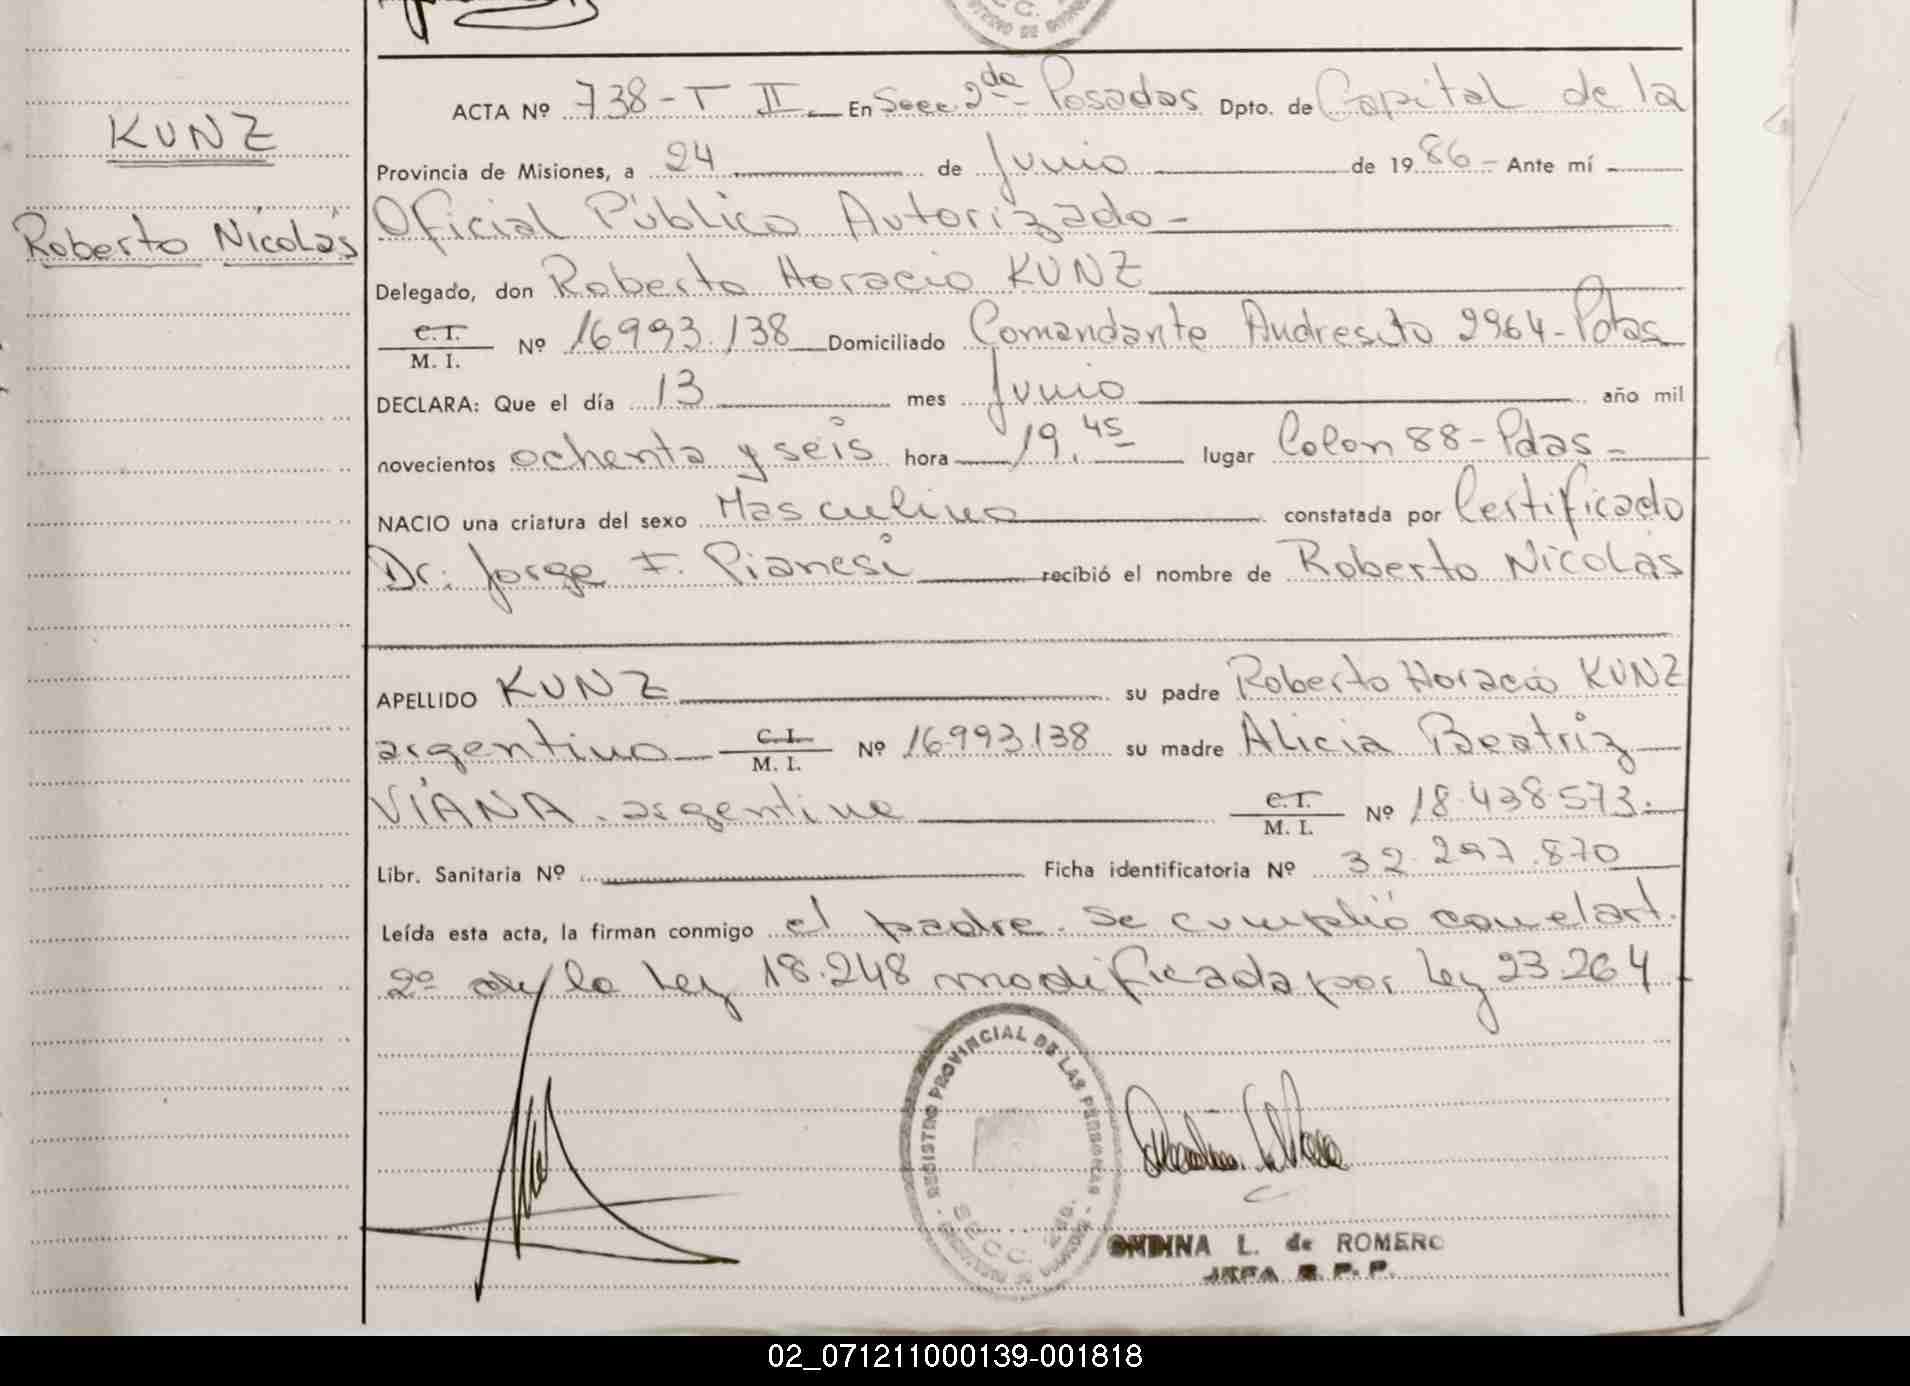 KUNZ
Roberto Nicolás
ACTA Nº 738-T II En Secc. 2da Posadas Dpto. de Capital de la
Provincia de Misiones, a 24 de Junio de 1986 - Ante mí
Oficial Público Autorizado -
Delegado, don Roberto Horacio KUNZ
C.I. / M. I. Nº 16993.138 Domiciliado Comandante Andresito 2964 - Pdas
DECLARA: Que el día 13 mes Junio año mil
novecientos ochenta y seis hora 19,45 lugar Colon 88 - Pdas -
NACIO una criatura del sexo Masculino constatada por Certificado
Dr. Jorge F. Pianesi recibió el nombre de Roberto Nicolás
APELLIDO KUNZ su padre Roberto Horacio KUNZ
argentino C.I. / M. I. Nº 16.993.138 su madre Alicia Beatriz
VIANA . argentina C.I. / M. I. Nº 18.438.573.
Libr. Sanitaria Nº Ficha identificatoria Nº 32.297.870
Leída esta acta, la firman conmigo el padre. Se cumplió con el art.
2º de la Ley 18.248 modificada por Ley 23.264
REGISTRO PROVINCIAL DE LAS PERSONAS
SECC. 2da.
ONDINA L. de ROMERO
JEFA R. P. P.
02_071211000139-001818